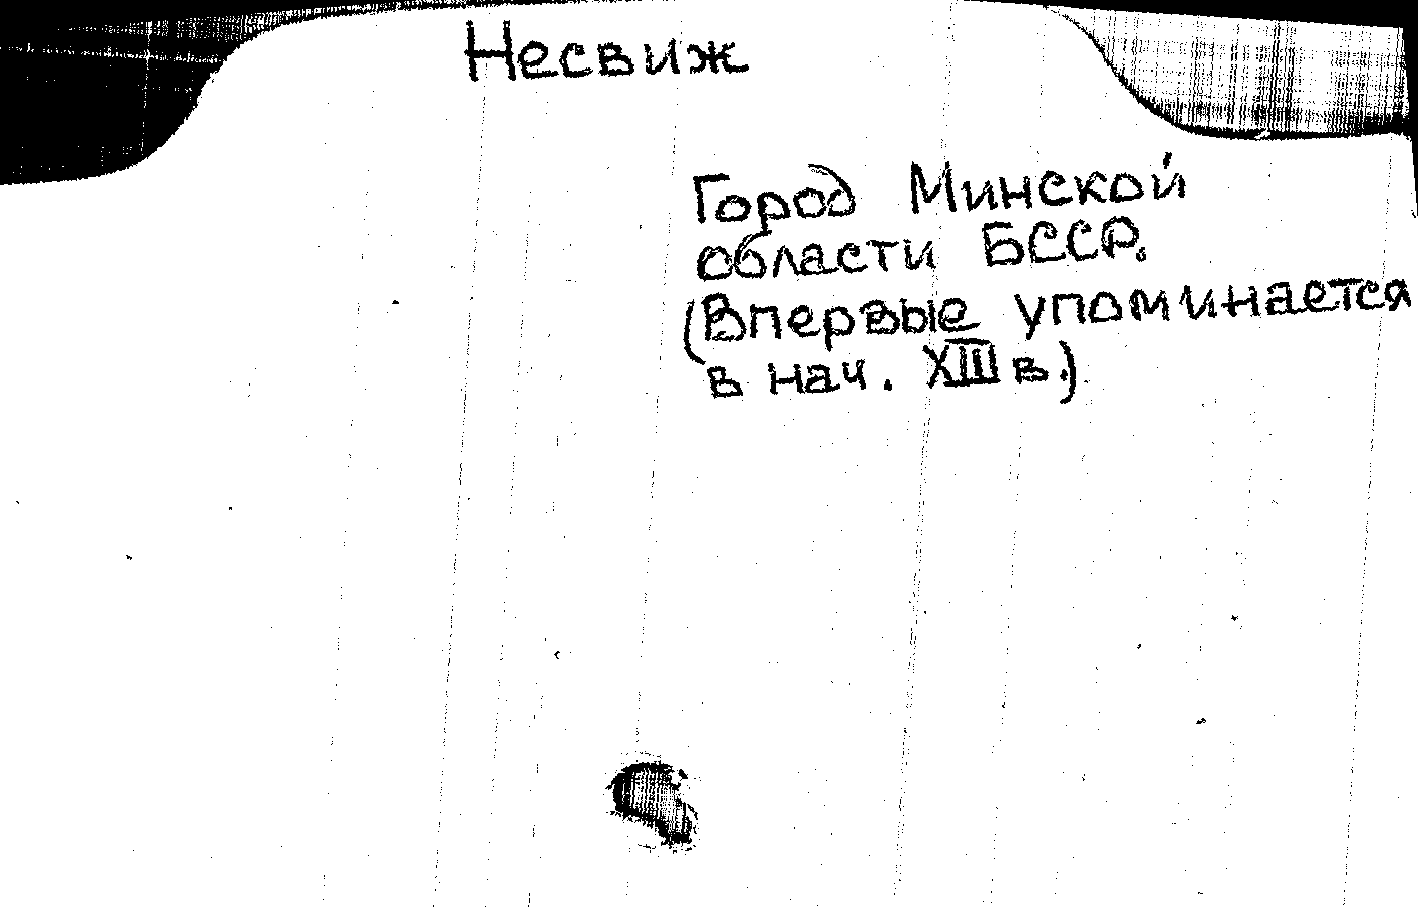 Несвиж
Город Минской
области БССР.
(Впервые упоминается
в нач. XIII в.)